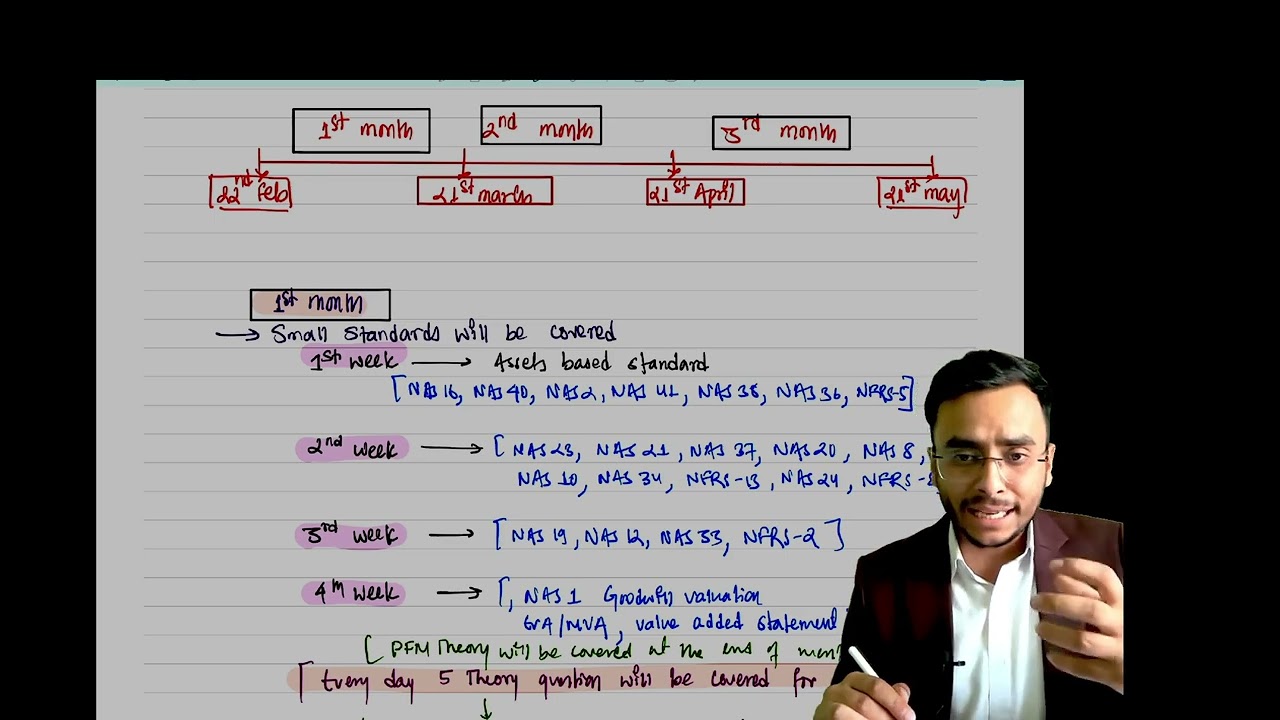 1st month 2nd month 3rd month
22nd Feb 21st march 21st April 21st may
1st month
→ Small standards will be covered
1st week → Assets based standard
[NAS 16, NAS 40, NAS 2, NAS 41, NAS 38, NAS 36, NFRS-5]
2nd week → [NAS 23, NAS 21, NAS 37, NAS 20, NAS 8,
NAS 10, NAS 34, NFRS-13, NAS 24, NFRS-
3rd week → [NAS 19, NAS 12, NAS 33, NFRS-2]
4th week → [, NAS 1 valuation
EVA/MVA, value added statement
[PFM Theory will be covered at the end of
[Every day 5 Theory question will be covered for